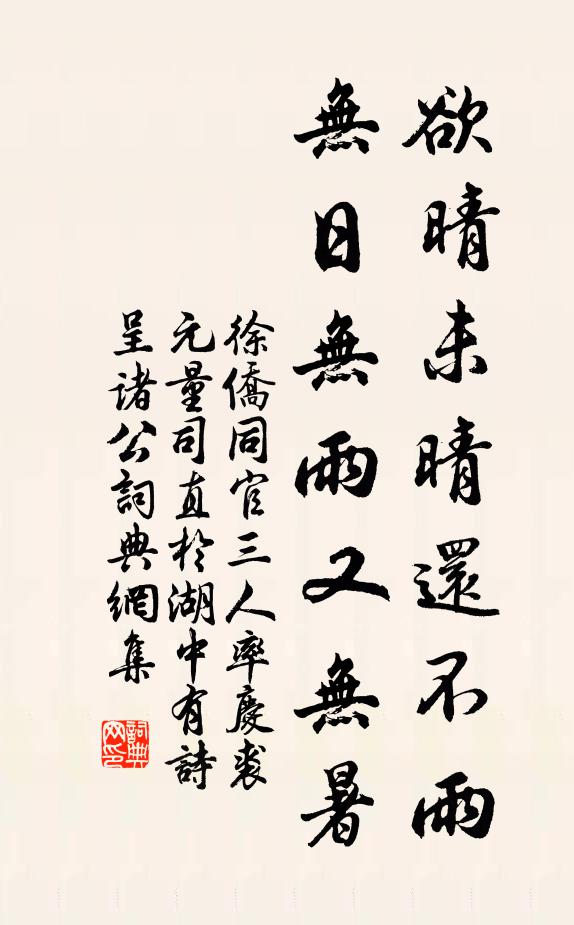 欲晴未晴還不雨
無日無雨又無暑
徐僑同官三人率慶裘
元量司直於湖中有詩
呈諸公詞典網集
詞典
网印